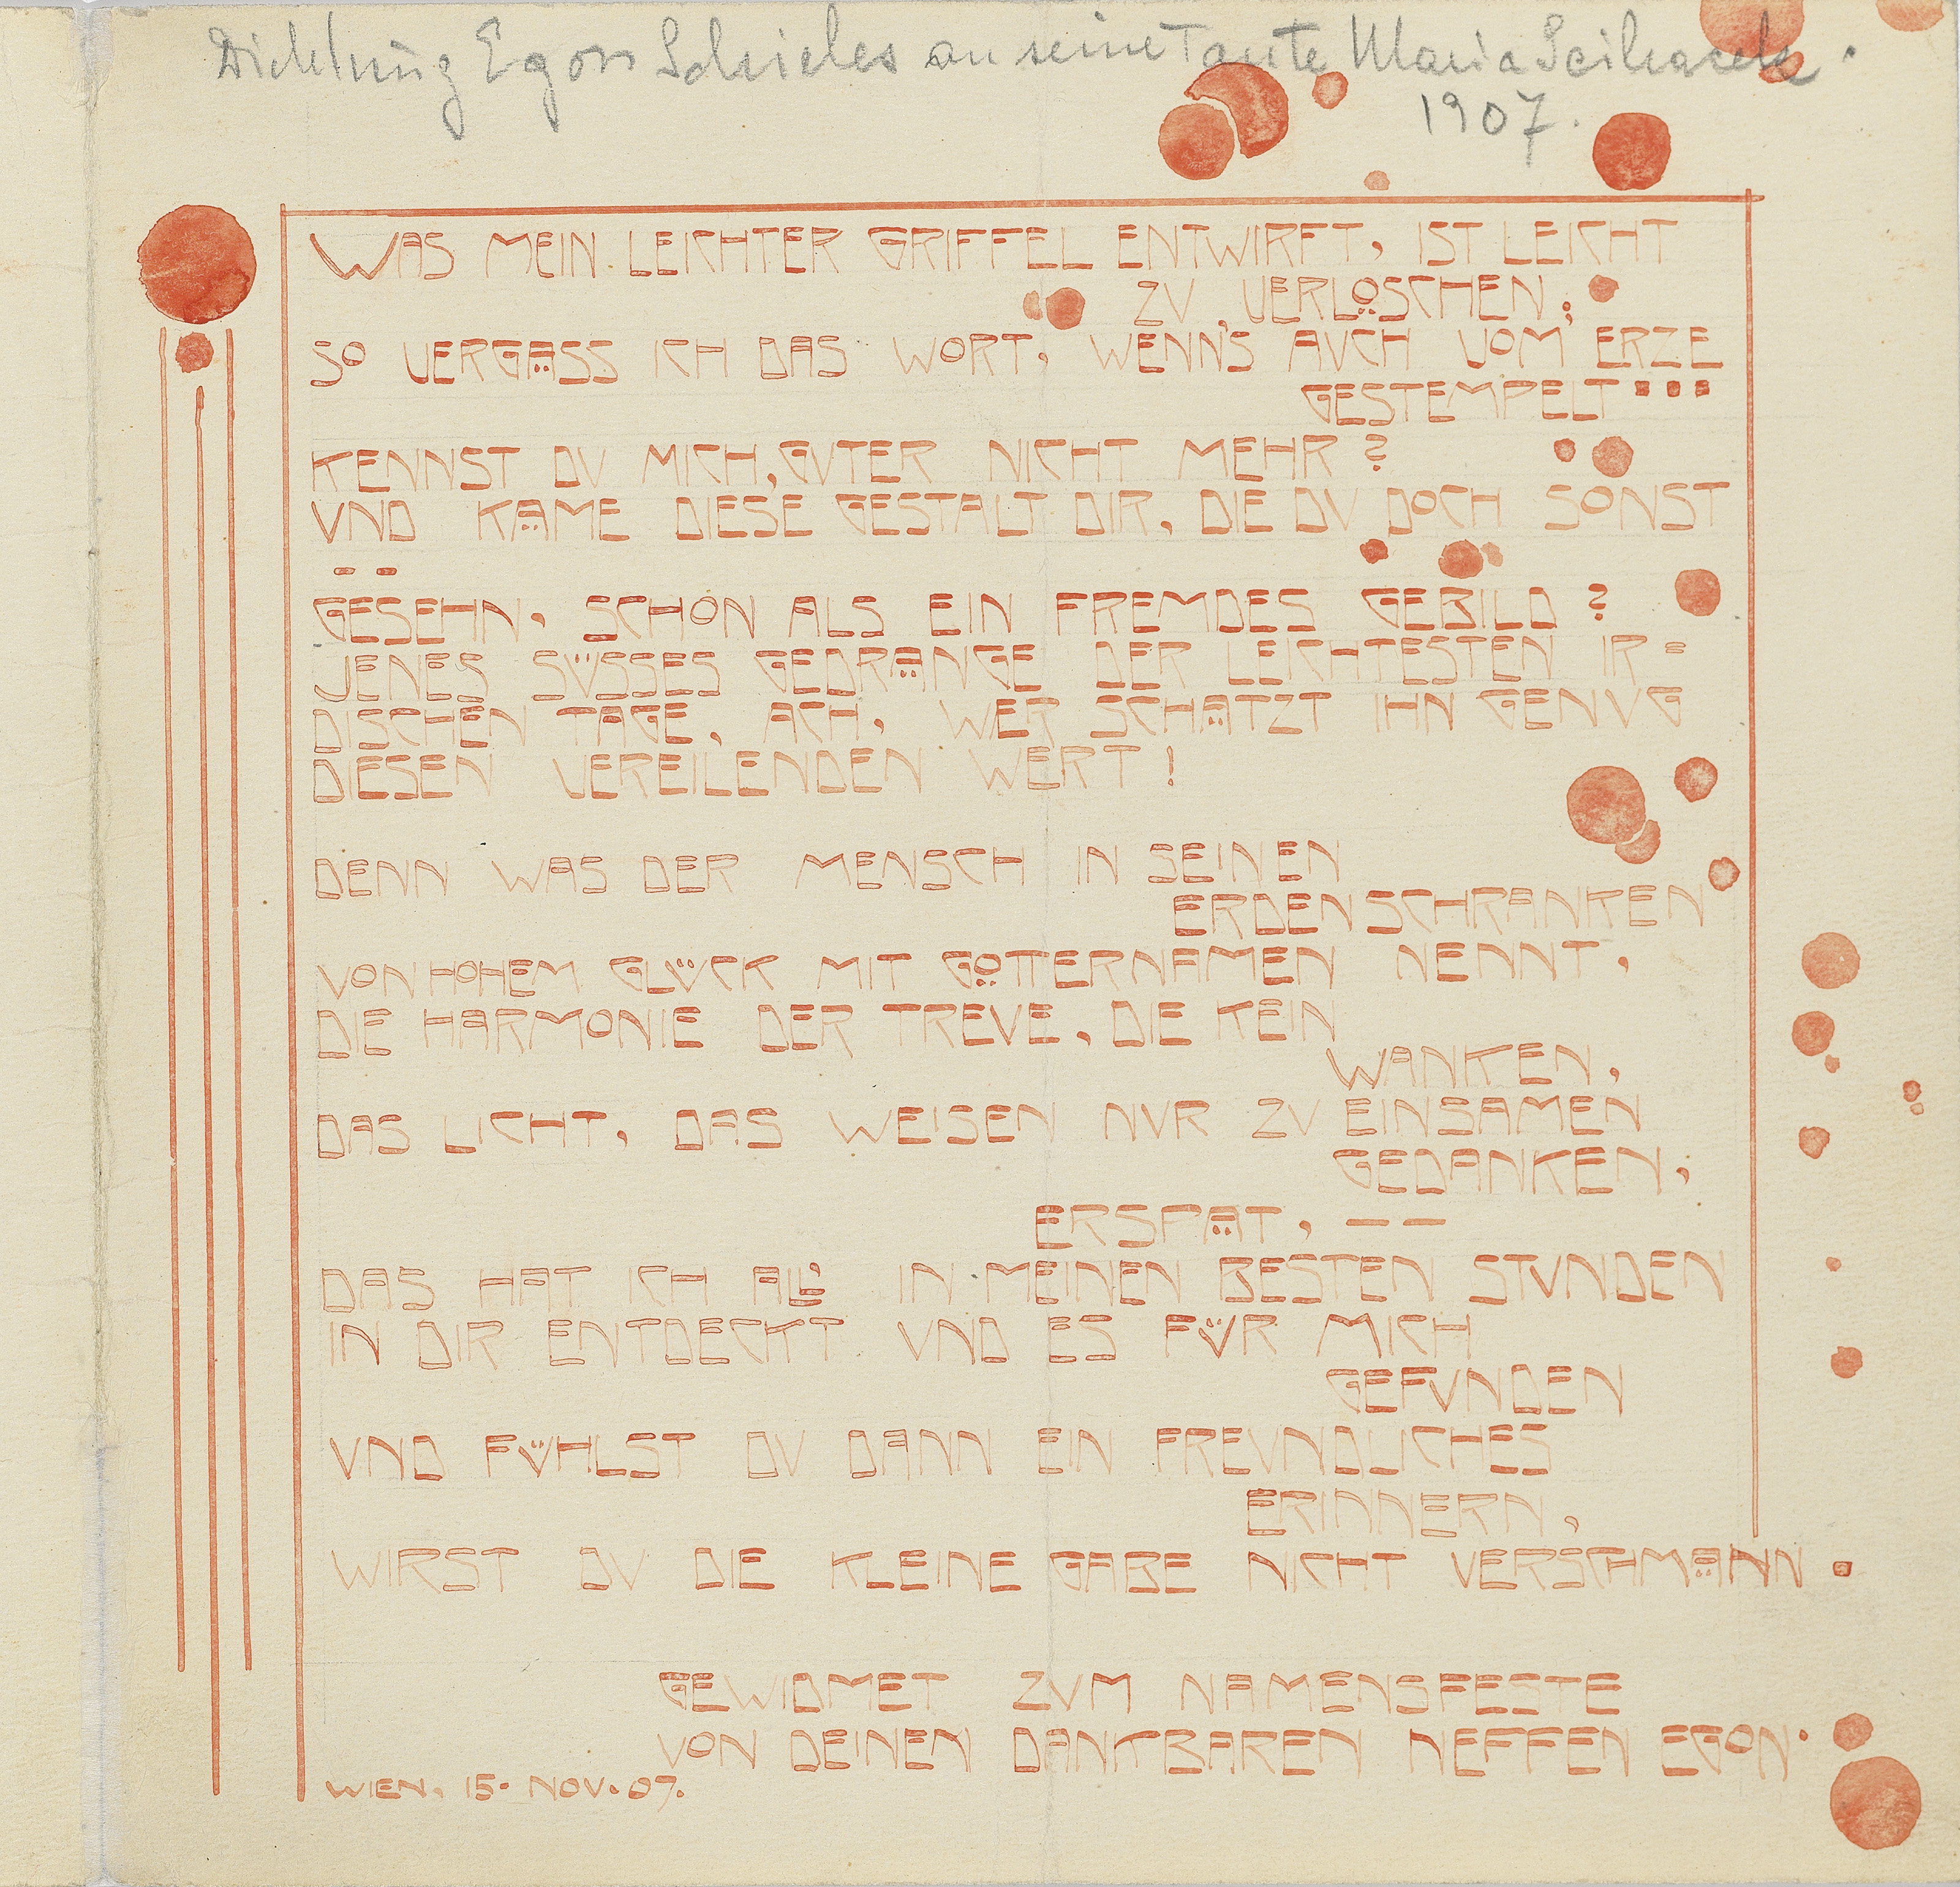 Dichtung Egon Schieles an seine Tante Maria
1907.
WAS MEIN LEICHTER GRIFFEL ENTWIRFT, IST LEICHT
ZU VERLÖSCHEN;
SO VERGÄSS ICH DAS WORT, WENN'S AUCH VOM ERZE
GESTEMPELT...
KENNST DU MICH, GUTER NICHT MEHR?
UND KÄME DIESE GESTALT DIR, DIE DU DOCH SONST
--
GESEHN, SCHON ALS EIN FREMDES GEBILD?
JENES SÜSSES GEDRÄNGE DER LEICHTESTEN IR=
DISCHEN TAGE, ACH, WER SCHÄTZT IHN GENUG
DIESEN VEREILENDEN WERT!
DENN WAS DER MENSCH IN SEINEN
ERDENSCHRANKEN
VON HOHEM GLÜCK MIT GÖTTERNAMEN NENNT,
DIE HARMONIE DER TREUE, DIE KEIN
WANKEN,
DAS LICHT, DAS WEISEN NUR ZU EINSAMEN
GEDANKEN,
ERSPÄT, --
DAS HAT ICH ALL' IN MEINEN BESTEN STUNDEN
IN DIR ENTDECKT UND ES FÜR MICH
GEFUNDEN
UND FÜHLST DU DANN EIN FREUNDLICHES
ERINNERN,
WIRST DU DIE KLEINE GABE NICHT VERSCHMÄNN.
GEWIDMET ZUM NAMENSFESTE
VON DEINEM DANKBAREN NEFFEN EGON.
WIEN, 15. NOV. 07.